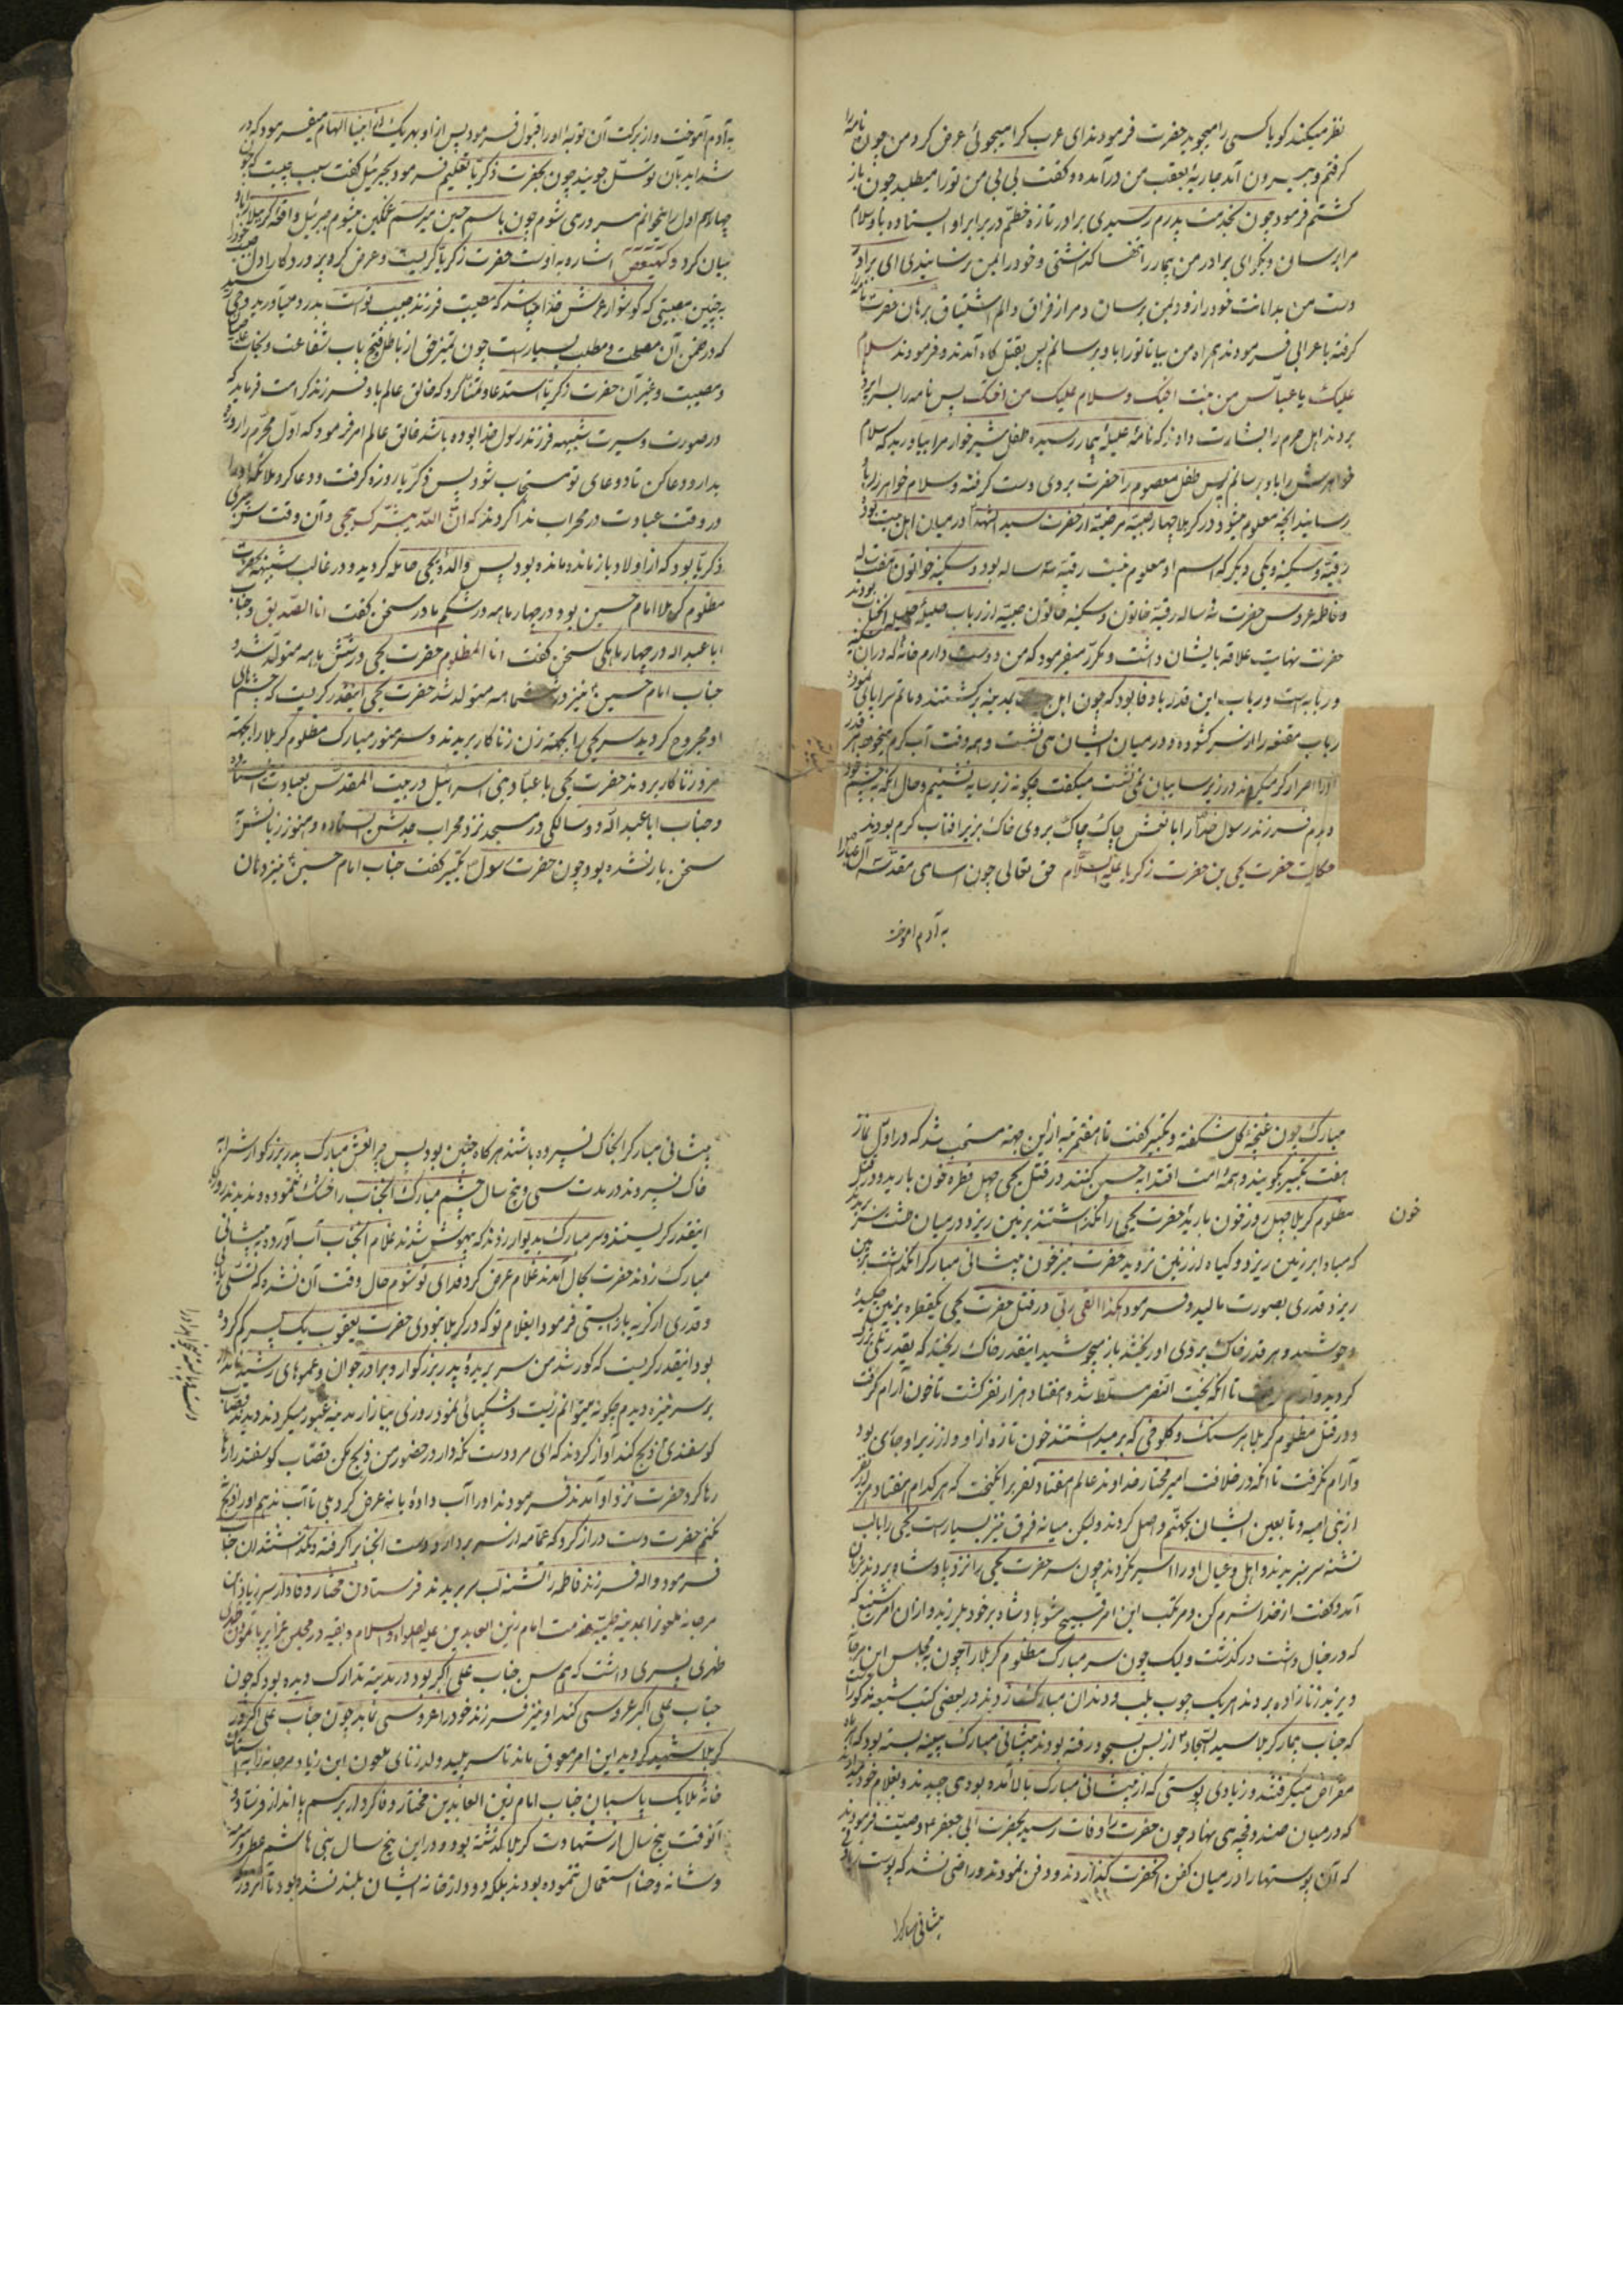 نظر میکند کویا کسی را میجوید حضرت فرمودند ای عرب کرا میجوئی عرض کرد من چون نامه را
کرفتم و بیرون آمدم جاریهٔ بعقب من در آمده و کفت بی بی من تو را میطلبد چون باز
کشتم فرمود چون بخدمت پدرم رسیدی برادر تازه خطم در برابر او ایستاده باو سلام
مرا برسان و بکو ای برادر من بیمار را تنها کذاشتی و خود رفتی
دست من بدامانت خود را زود بمن برسان و مرا از فراق و الم اشتیاق برهان حضرت نامه را
کرفته باعرابی فرمودند همراه من بیا تا تو را باو برسانم پس بقتلکاه آمدند و فرمودند سلام
علیک یا عباس من بنت اخیک و سلام علیک من اختک پس نامه را
بردند اهل حرم را بشارت دادند که نامهٔ علیلهٔ بیمار رسیده طفل شیرخوار مرا بیاورید که سلام
خواهرش را باو برسانم پس طفل معصوم را حضرت بروی دست کرفته و سلام خواهر را باو
رسانید آنچه معلوم میشود در کربلا چهار صبیهٔ مرضیه از حضرت سید الشهدا در میان اهل بیت بود
رقیه و سکینه و یکی دیکر که اسم او معلوم نیست رقیه سه ساله بود و سکینه خواتون
و فاطمه عروس حضرت سه ساله رقیه خاتون و سکینه خاتون صبیه از رباب
حضرت نهایت علاقه بایشان داشت و مکرر میفرمود که من دوست دارم خانهٔ که در آن سکینه
و رباب است و رباب این قدر باوفا بود که چون اهل بیت بمدینه برکشتند و ماتم سرا
رباب مقنعه را از سر کشوده و در میان ایشان می نشست و همه وقت آب کرم میخورد هر قدر
او را اصرار میکردند در زیر سایبان نمی نشست میکفت چکونه زیر سایه نشینم و حال آنکه بچشم خود
دیدم فرزند رسول خدا را با نعش چاک چاک بروی خاک بزیر افتاب کرم بودند
حکایت حضرت یحیی بن حضرت زکریا علیه السلام حق تعالی چون اسامی مقدسه آل عبا را
به آدم اموخت
به آدم آموخت و از برکت آن توبهٔ او را قبول فرمود پس از او بهر یک از انبیا الهام میفرمود که در
شداید بآن توسل جویند چون بحضرت زکریا تعلیم فرمود بجبرئیل کفت سبب چیست که چون
چهار اسم اول را میخوانم مسرور می شوم چون باسم حسین میرسم غمکین میشوم جبرئیل واقعهٔ کربلا را باو
بیان کرد و کهیعص اشاره به اوست حضرت زکریا کریست و عرض کرد پروردکارا دل حبیب خود را
به چنین مصیبتی که کوشوار عرش خدا
که در ضمن آن مصلحت و مطلب بسیار است چون تمیز حق از باطل فتح باب شفاعت و نجات
و مصیبت و غیر آن حضرت زکریا استدعا و تمنا کرد که خالق عالم باو فرزند کرامت فرماید که
در صورت و سیرت شبیهه فرزند رسول خدا بوده باشد خالق عالم امر فرمود که اول محرم را روزه
بدار و دعا کن تا دعای تو مستجاب شود پس زکریا روزه کرفت و دعا کرد ملائکه او را
در وقت عبادت در محراب ندا کردند که ان الله یبشرک بیحیی و آن وقت سن
زکریا بود که از اولاد باز مانده مانده بود پس والدهٔ یحیی حامله کردید و در غالب شبیهه
مظلوم کربلا امام حسین بود در چهار ماهه در شکم مادر سخن کفت انا الصدیق و جناب
اباعبدالله در چهار ماهکی سخن کفت انا المظلوم حضرت یحیی در شش ماهه متولد شد و
جناب امام حسین نیز در ششماهه متولد شد حضرت یحیی اینقدر کریست که چشم های
او مجروح کردید سر یحیی را بجهة زن زناکار بریدند و سر منور مبارک مظلوم کربلا را بجهة
مرد زناکار بردند حضرت یحیی با عباد بنی اسرائیل در بیت المقدس بعبادت
و جناب اباعبدالله در دو سالکی در مسجد نزد محراب جدش ایستاده و هنوز زبانش
سخن باز نشده بود چون حضرت رسول تکبیر کفت جناب امام حسین نیز دهان
مبارک چون غنچهٔ کل شکفته و تکبیر کفت تا هفتم مرتبه از این جهته مستحب شد که در اول نماز
هفت تکبیر بکویند و همهٔ امت اقتدا به حسین کنند در قتل یحیی چهل قطره خون بارید و در قتل
مظلوم کربلا چهل روز خون بارید حضرت یحیی را نکذاشتند بزمین ریزد در میان طشت سر بریدند
خون
که مبادا بر زمین ریزد و کیاه از زمین نروید حضرت نیز خون پیشانی مبارک را نکذاشت بزمین
ریزد قدری بصورت مالید و فرمود هکذا القی ربی در قتل حضرت یحیی یکقطره بزمین چکیده
و جوشید و هر قدر خاک بروی او ریختند باز میجوشید اینقدر خاک ریختند که بقدر تلی بزرک
کردید و آرام نکرفت تا آنکه بخت النصر مسلط شد و هفتاد هزار نفر کشت تا خون آرام کرفت
و در قتل مظلوم کربلا هر سنک و کلوخی که بر میداشتند خون تازه از او و از زیر او جاری بود
و آرام نکرفت تا آنکه در خلافت امیر مختار خداوند عالم هفتاد نفر برانکیخت که هر کدام هفتاد هزار نفر
از بنی امیه و تابعین ایشان بجهنم واصل کردند و لیکن میانه فرق نیز بسیار است یحیی را با لب
تشنه سر نبریدند و اهل و عیال او را اسیر نکردند چون سر حضرت یحیی را نزد پادشاه بردند بزبان
آمد و کفت از خدا شرم کن و مرتکب این امر قبیح مشو پادشاه بر خود بلرزید و از آن امر شنیع که
که در خیال داشت در کذشت و لیک چون سر مبارک مظلوم کربلا را چون بمجلس ابن مرجانه
و یزید زنازاده بردند هر یک چوب بلب و دندان مبارکش زدند در بعضی کتب شیعه مذکور است
که جناب بیمار کربلا سید السجاد از بس بسجود رفته بودند پیشانی مبارک پینه بسته بود که
مقراض میکرفتند و زیادی پوستی که از پیشانی مبارک بالا آمده بود می چیدند و بغلام خود میدادند
که در میان صندوقچه می نهاد چون حضرت را وفات رسید بحضرت ابی جعفر وصیت فرمودند
که آن پوستها را در میان کفن آنحضرت کذاردند و دفن نمودند و راضی نشد که پوست
پیشانی مبارک را
پیشانی مبارک را بخاک نسپرده باشند هرکاه چنین بود پس چرا نعش مبارک پدر بزرکوارش را به
خاک نسپردند در مدت سی و پنج سال چشم مبارک آنجناب را خشک ننموده و ندیدند روزی
اینقدر کریستند و سر مبارک بدیوار زدند که بیهوش شدند غلام آنجناب آب آورده به پیشانی
مبارک زدند حضرت بحال آمدند غلام عرض کرد فدای تو شوم حال وقت آن نشده که تسلی یابی
و قدری از کریه باز ایستی فرمود ایغلام تو که در کربلا نبودی حضرت یعقوب یک پسر کم کرده
بود اینقدر کریست که کور شد من سر بریدهٔ پدر بزرکوار و برادر جوان و عموهای
بر سر نیزه دیدم چکونه میتوانم زیست و شکیبائی نمود روزی ببازار مدینه عبور میکردند دیدند قصاب
کوسفندی ذبح کند آواز کردند که ای مرد دست نکه دار در حضور من ذبح مکن قصاب کوسفند را رها
رها کرد حضرت نزد او آمدند فرمودند او را آب دادهٔ یا نه عرض کرد بلی تا آب ندهم او را ذبح
نکنم حضرت دست دراز کرد که عمامه از سر بردارد دست آنجناب را کرفته و نکذاشتند آن جناب
فرمود والله فرزند فاطمه را تشنه لب سر بریدند فرستادن مختار وفادار سر زیاد ابن
مرجانه ملعون را بمدینه طیبه خدمت امام زین العابدین علیه الصلواة والسلام
طهری پسری داشت که هم سن جناب علی اکبر بود در مدینه تدارک دیده بود که چون
جناب علی اکبر عروسی کند او نیز فرزند خود را عروسی نماید چون جناب علی اکبر در
کربلا شهید کردید این امر معوق ماند تا سر پلید ولد زنای ملعون ابن زیاد مرجانه را به آستان
خانهٔ ملایک پاسبان جناب امام زین العابدین مختار وفاکردار برسم پا انداز فرستاد و
آنوقت پنج سال از شهادت کربلا کذشته بود و در این پنج سال بنی هاشم عطر و سرمه
و شانه و حنا استعمال ننموده بودند بلکه دود از خانه ایشان بلند نشده بود تا آنروز